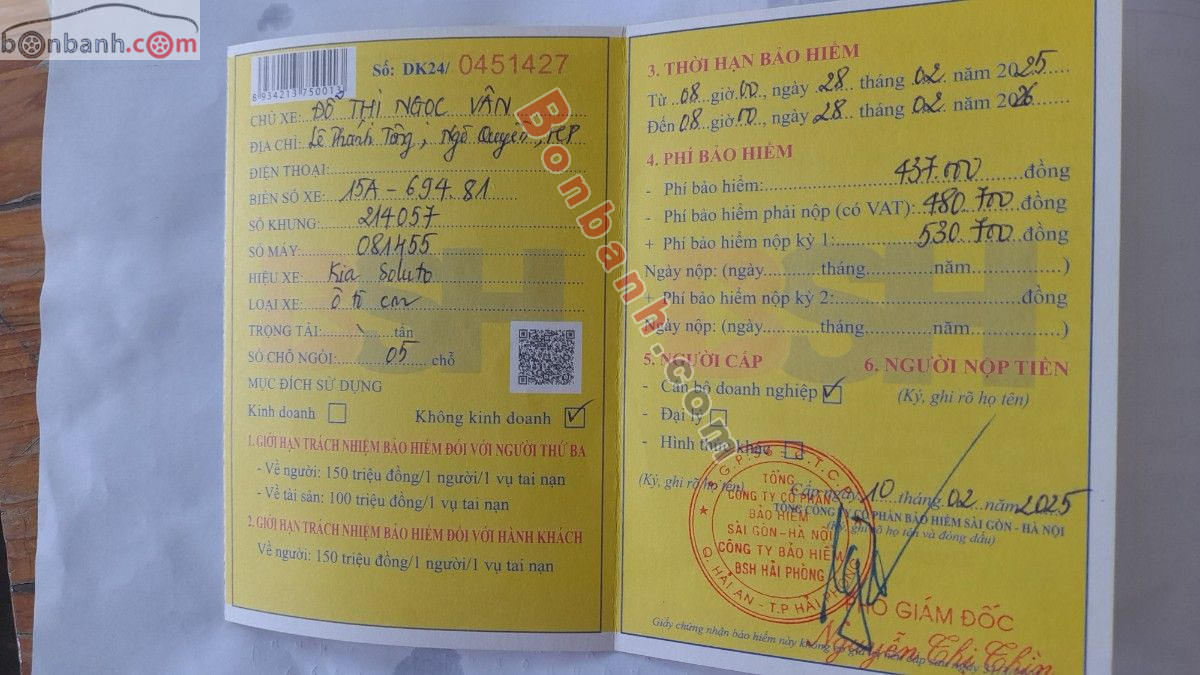 bonbanh.com
8 934213 75001
Số: DK24/ 0451427
CHỦ XE: ĐỖ THỊ NGỌC VÂN
ĐỊA CHỈ: Lê Thánh Tông, Ngô Quyền, HP
ĐIỆN THOẠI:
BIỂN SỐ XE: 15A - 694.81
SỐ KHUNG: 214057
SỐ MÁY: 081455
HIỆU XE: Kia Soluto
LOẠI XE: Ô tô con
TRỌNG TẢI: tấn
SỐ CHỖ NGỒI: 05 chỗ
MỤC ĐÍCH SỬ DỤNG
Kinh doanh Không kinh doanh
1. GIỚI HẠN TRÁCH NHIỆM BẢO HIỂM ĐỐI VỚI NGƯỜI THỨ BA
- Về người: 150 triệu đồng/1 người/1 vụ tai nạn
- Về tài sản: 100 triệu đồng/1 vụ tai nạn
2. GIỚI HẠN TRÁCH NHIỆM BẢO HIỂM ĐỐI VỚI HÀNH KHÁCH
Về người: 150 triệu đồng/1 người/1 vụ tai nạn
Bonbanh.com
3. THỜI HẠN BẢO HIỂM
Từ 08 giờ 00, ngày 28 tháng 02 năm 2025
Đến 08 giờ 00, ngày 28 tháng 02 năm 2026
4. PHÍ BẢO HIỂM
- Phí bảo hiểm: 437.000 đồng
- Phí bảo hiểm phải nộp (có VAT): 480.700 đồng
+ Phí bảo hiểm nộp kỳ 1: 530.700 đồng
Ngày nộp: (ngày tháng năm )
+ Phí bảo hiểm nộp kỳ 2: đồng
Ngày nộp: (ngày tháng năm )
5. NGƯỜI CẤP 6. NGƯỜI NỘP TIỀN
- Cán bộ doanh nghiệp (Ký, ghi rõ họ tên)
- Đại lý
- Hình thức khác
(Ký, ghi rõ họ tên) Cấp ngày 10 tháng 02 năm 2025
TỔNG CÔNG TY CỔ PHẦN BẢO HIỂM SÀI GÒN - HÀ NỘI
(Ký, ghi rõ họ tên và đóng dấu)
TỔNG
CÔNG TY CỔ PHẦN
BẢO HIỂM
SÀI GÒN-HÀ NỘI
CÔNG TY BẢO HIỂM
BSH HẢI PHÒNG
Q. HẢI AN - T.P HẢI PHÒNG
PHÓ GIÁM ĐỐC
Nguyễn Thị Thìn
Giấy chứng nhận bảo hiểm này không có giá trị nếu cấp sau ngày